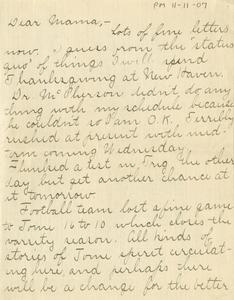 PM 11-11-07
Dear Mama,-
Lots of fine letters
now. I guess from the status
quo of things I will spend
Thanksgiving at New Haven.
Dr. McPherson didn't do any
thing with my schedule because
he couldn't so I am O.K. Terribly
rushed at present with mid-
term coming Wednesday.
Flunked a test in Trig. the other
day but get another chance at
it tomorrow.
Football team lost a fine game
to Tome 16 to 10 which closes the
varsity season. All kinds of
stories of Tome spirit circulat-
ing here, and perhaps there
will be a change for the better